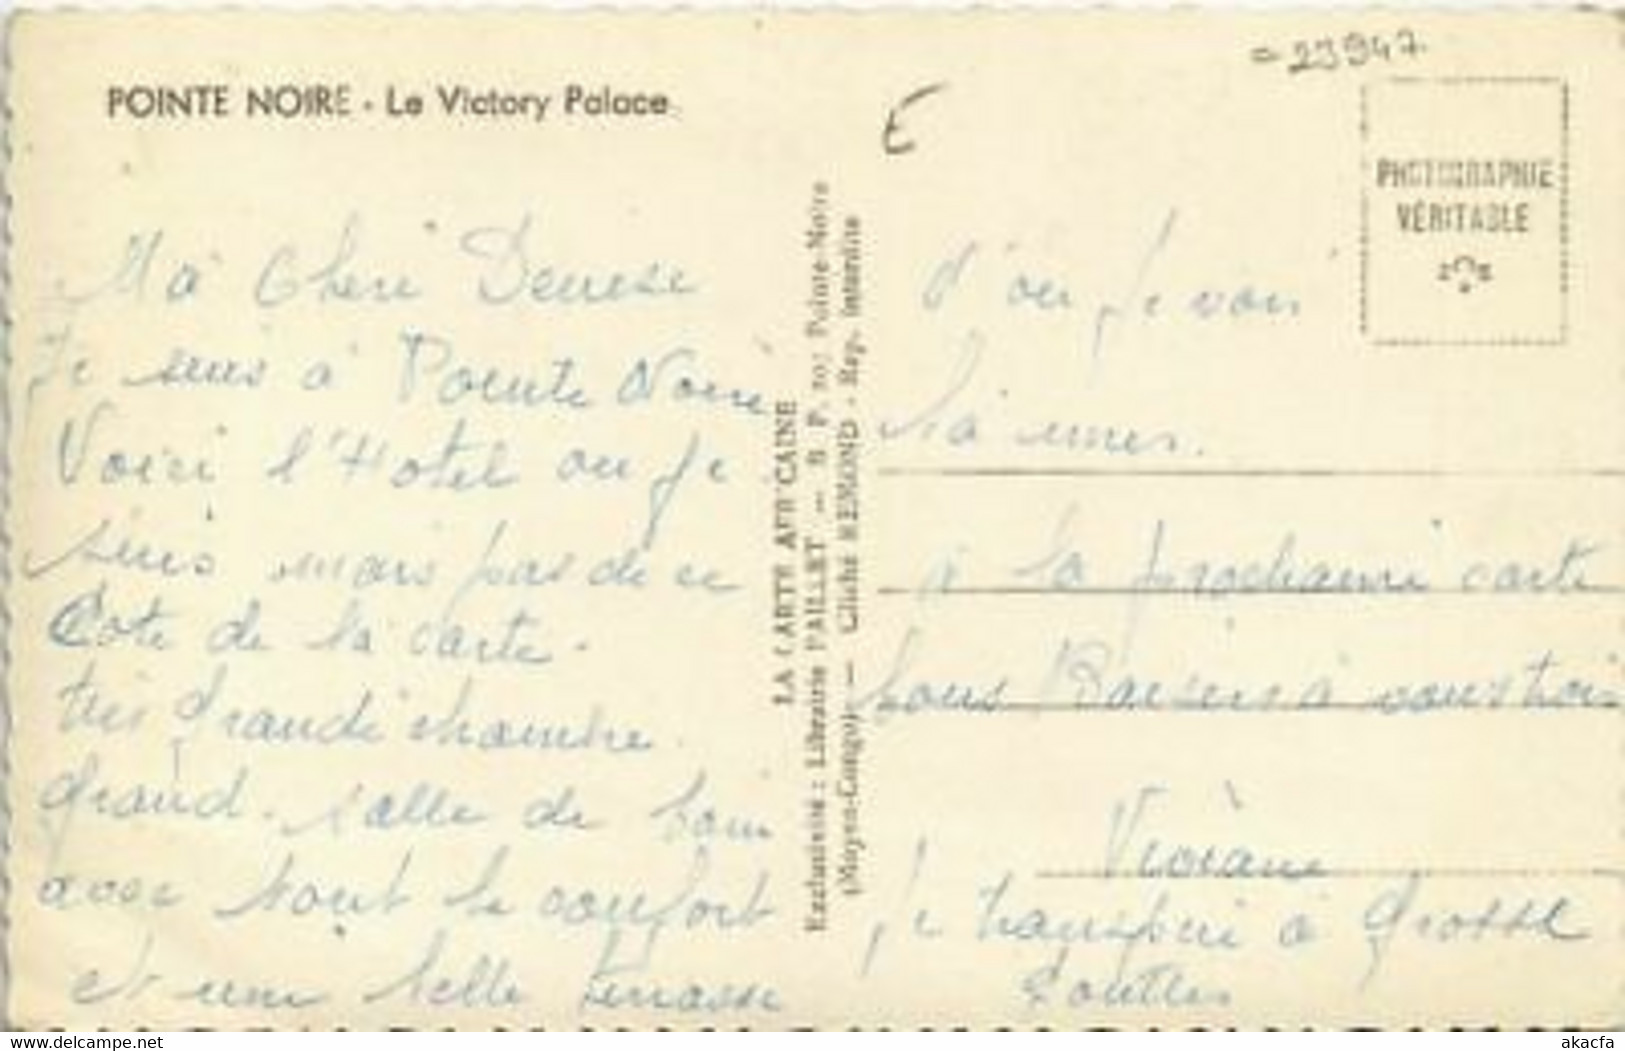 =23947
POINTE NOIRE - Le Victory Palace
E
PHOTOGRAPHIE
VÉRITABLE
Ma Cheri Denise
Je suis à Pointe Noire
Voici l'Hotel ou je
suis mais pas de ce
Cote de la carte.
très Grande chambre.
Grand. salle de bain
avec tout le confort
et une belle terrasse
LA CARTE AFRICAINE
Exclusivité : Librairie PAILLET — B. P. 207 Pointe-Noire
(Moyen-Congo) — Cliché REMOND - Rep. interdite
d'ou je vois
a la prochaine carte
bons Baisers a vous trois
Viviane
Je transpire a Grosse
Gouttes
akacfa